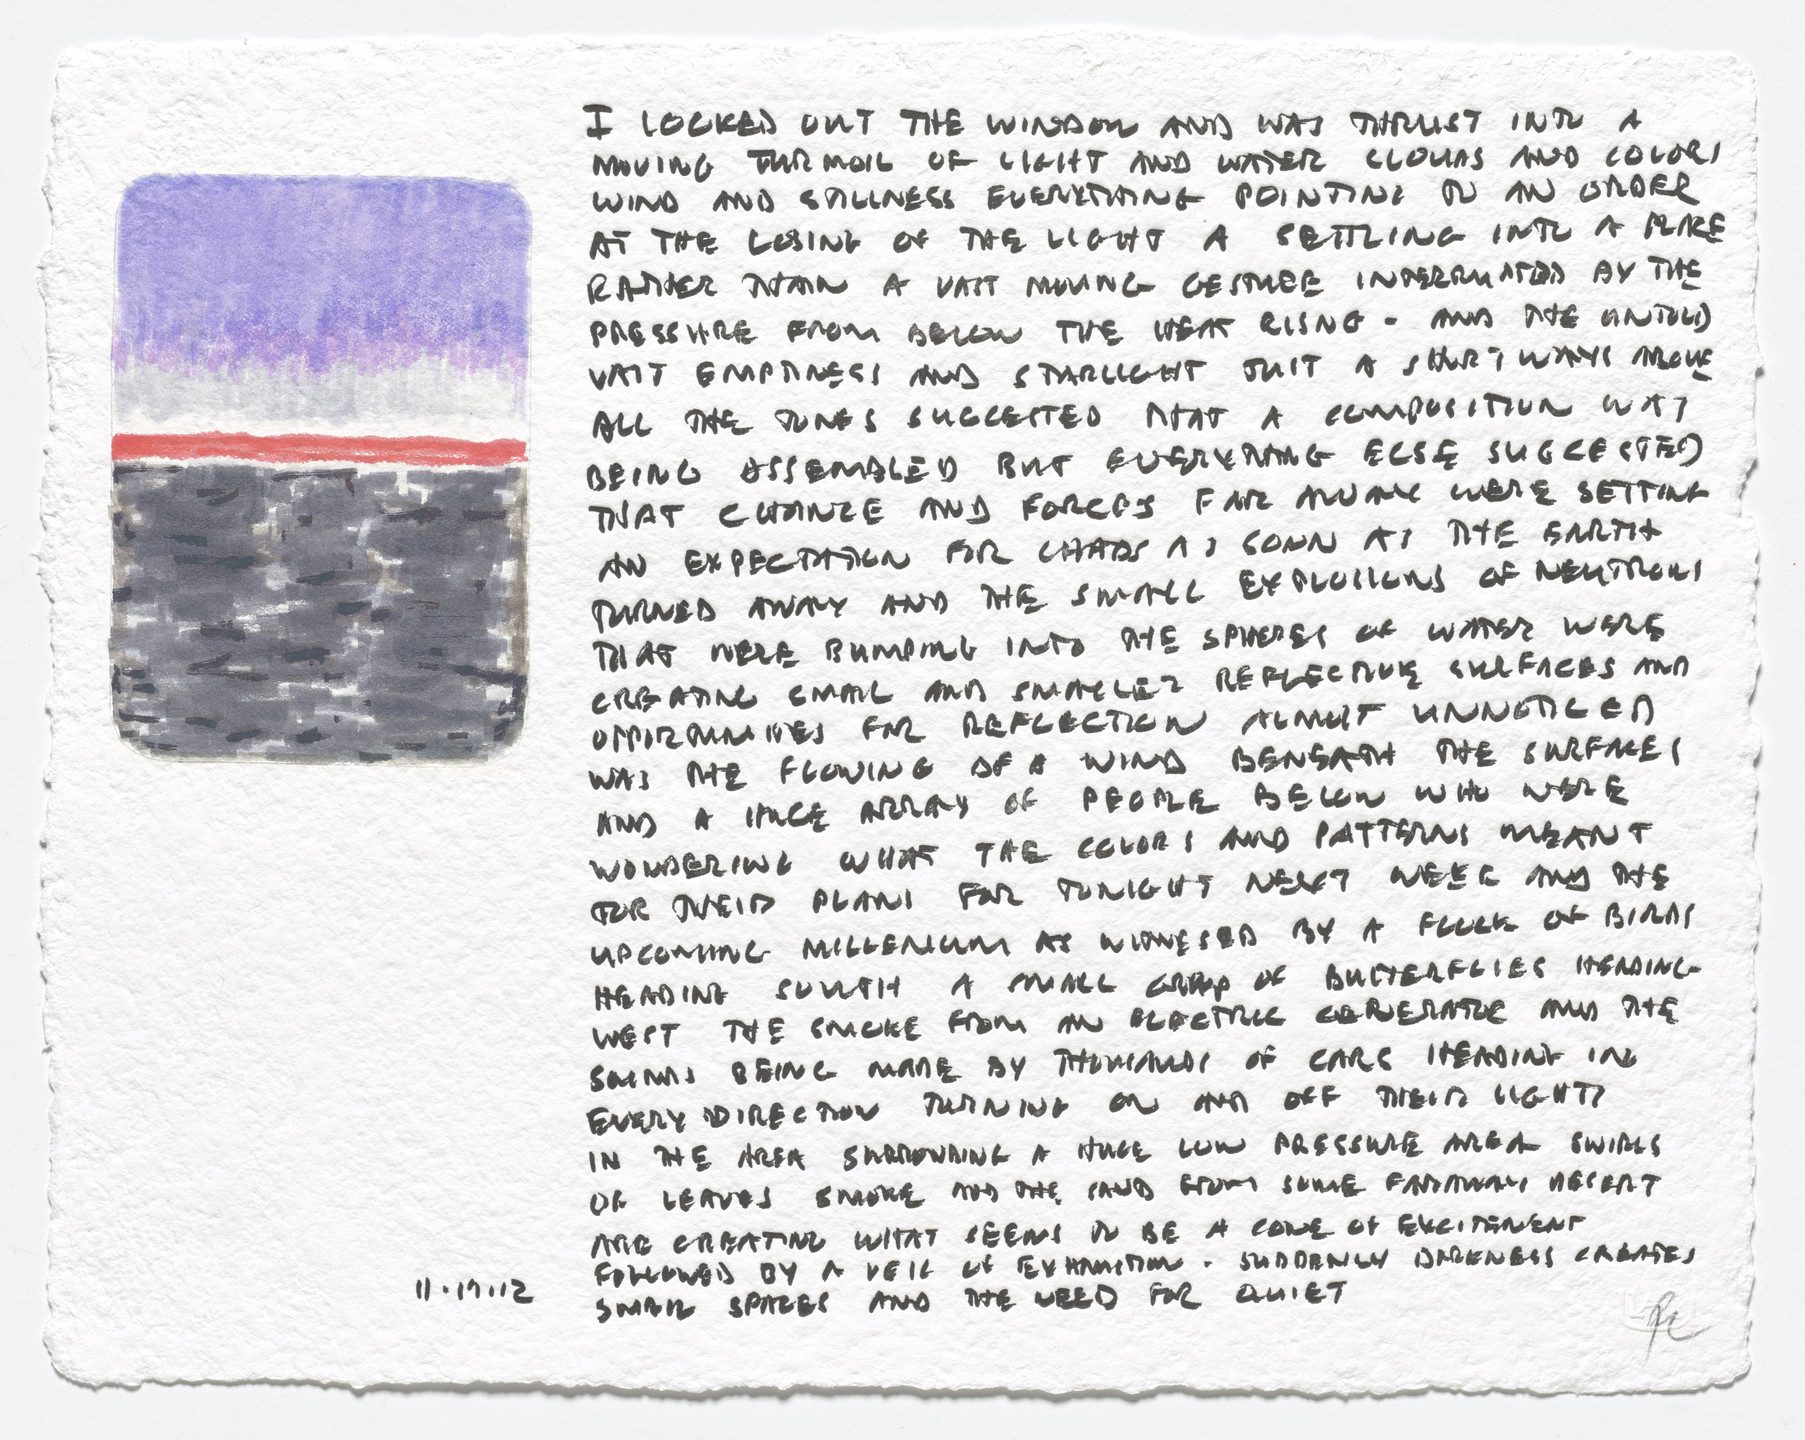 I LOOKED OUT THE WINDOW AND WAS THRUST INTO A
MOVING TURMOIL OF LIGHT AND WATER CLOUDS AND COLORS
WIND AND STILLNESS EVERYTHING POINTING TO AN ORDER
AT THE LOSING OF THE LIGHT A SETTLING INTO A PLACE
RATHER THAN A VAST MOVING GESTURE INTERRUPTED BY THE
PRESSURE FROM BELOW THE HEAT RISNG - AND THE UNTOLD
VAST EMPTINESS AND STARLIGHT JUST A SHORT WAYS ABOVE
ALL THE TONES SUGGESTED THAT A COMPOSITION WAS
BEING ASSEMBLED BUT EVERYTHING ELSE SUGGESTED
THAT CHANCE AND FORCES FAR AWAY WERE SETTING
AN EXPECTATION FOR CHAOS AS SOON AS THE EARTH
TURNED AWAY AND THE SMALL EXPLOSIONS OF NEUTRONS
THAT WERE BUMPING INTO THE SPHERES OF WATER WERE
CREATING SMALL AND SMALLER REFLECTIVE SURFACES AND
OPPORTUNITIES FOR REFLECTION ALMOST UNNOTICED
WAS THE FLOWING OF A WIND BENEATH THE SURFACES
AND A HUGE ARRAY OF PEOPLE BELOW WHO WERE
WONDERING WHAT THE COLORS AND PATTERNS MEANT
FOR THEIR PLANS FOR TONIGHT NEXT WEEK AND THE
UPCOMING MILLENIUM AS WITNESSED BY A FLOCK OF BIRDS
HEADING SOUTH A SMALL GROUP OF BUTTERFLIES HEADING
WEST THE SMOKE FROM AN ELECTRIC GENERATOR AND THE
SOUNDS BEING MADE BY THOUSANDS OF CARS HEADING IN
EVERY DIRECTION TURNING ON AND OFF THEIR LIGHTS
IN THE AREA SURROUNDING A HUGE LOW PRESSURE AREA SWIRLS
OF LEAVES SMOKE AND THE SAND FROM SOME FARAWAY DESERT
ARE CREATING WHAT SEEMS TO BE A CONE OF EXCITEMENT
FOLLOWED BY A VEIL OF EXHAUSTION - SUDDENLY DARKNESS CREATES
SMALL SPACES AND THE NEED FOR QUIET
11.19.12